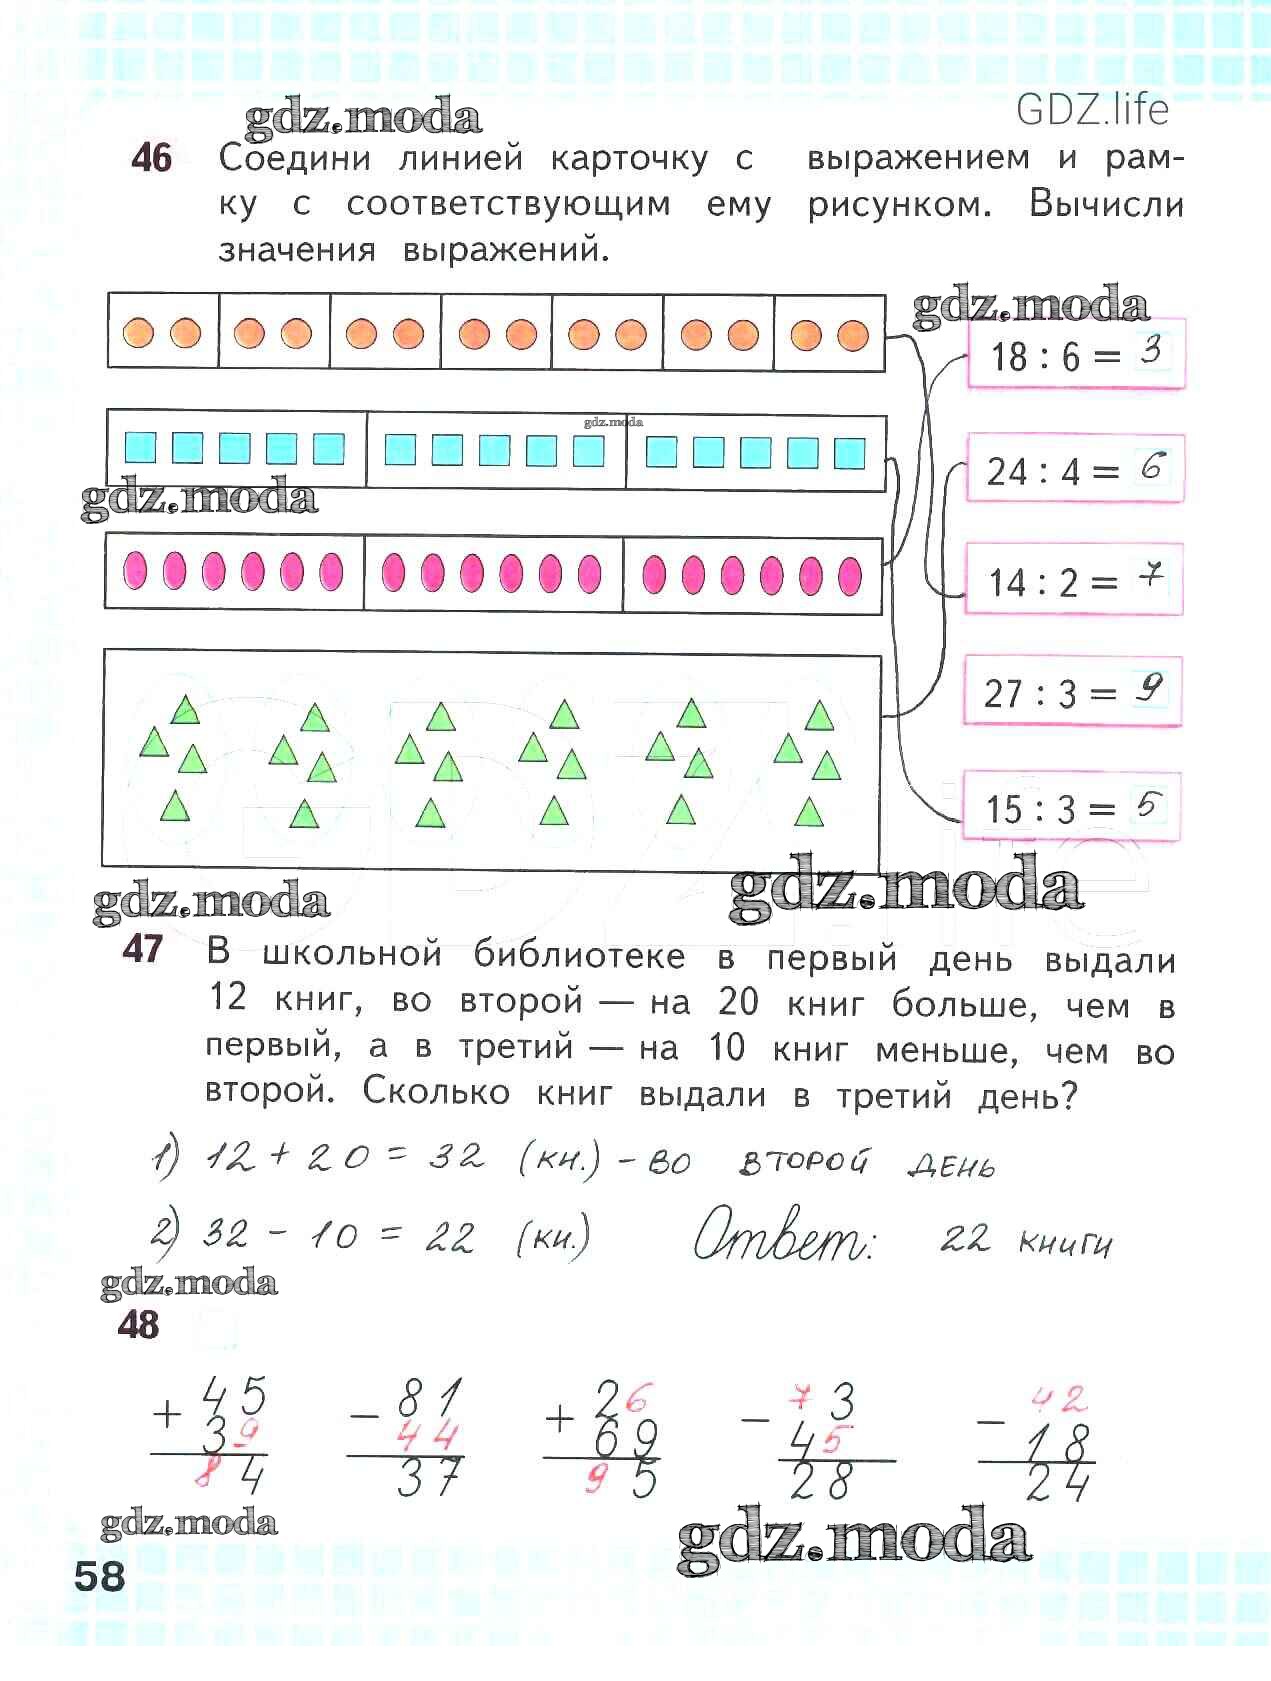 gdz.moda
GDZ.life
46 Соедини линией карточку с выражением и рам-
ку с соответствующим ему рисунком. Вычисли
значения выражений.
gdz.moda
18 : 6 = 3
gdz.moda
24 : 4 = 6
gdz.moda
14 : 2 = 7
27 : 3 = 9
15 : 3 = 5
gdz.moda
gdz.moda
47 В школьной библиотеке в первый день выдали
12 книг, во второй — на 20 книг больше, чем в
первый, а в третий — на 10 книг меньше, чем во
второй. Сколько книг выдали в третий день?
1) 12 + 20 = 32 (кн.) - во второй день
2) 32 - 10 = 22 (кн.) Ответ: 22 книги
gdz.moda
48
+ 45 - 81 + 26 - 73 - 42
39 44 69 45 18
84 37 95 28 24
gdz.moda
gdz.moda
58